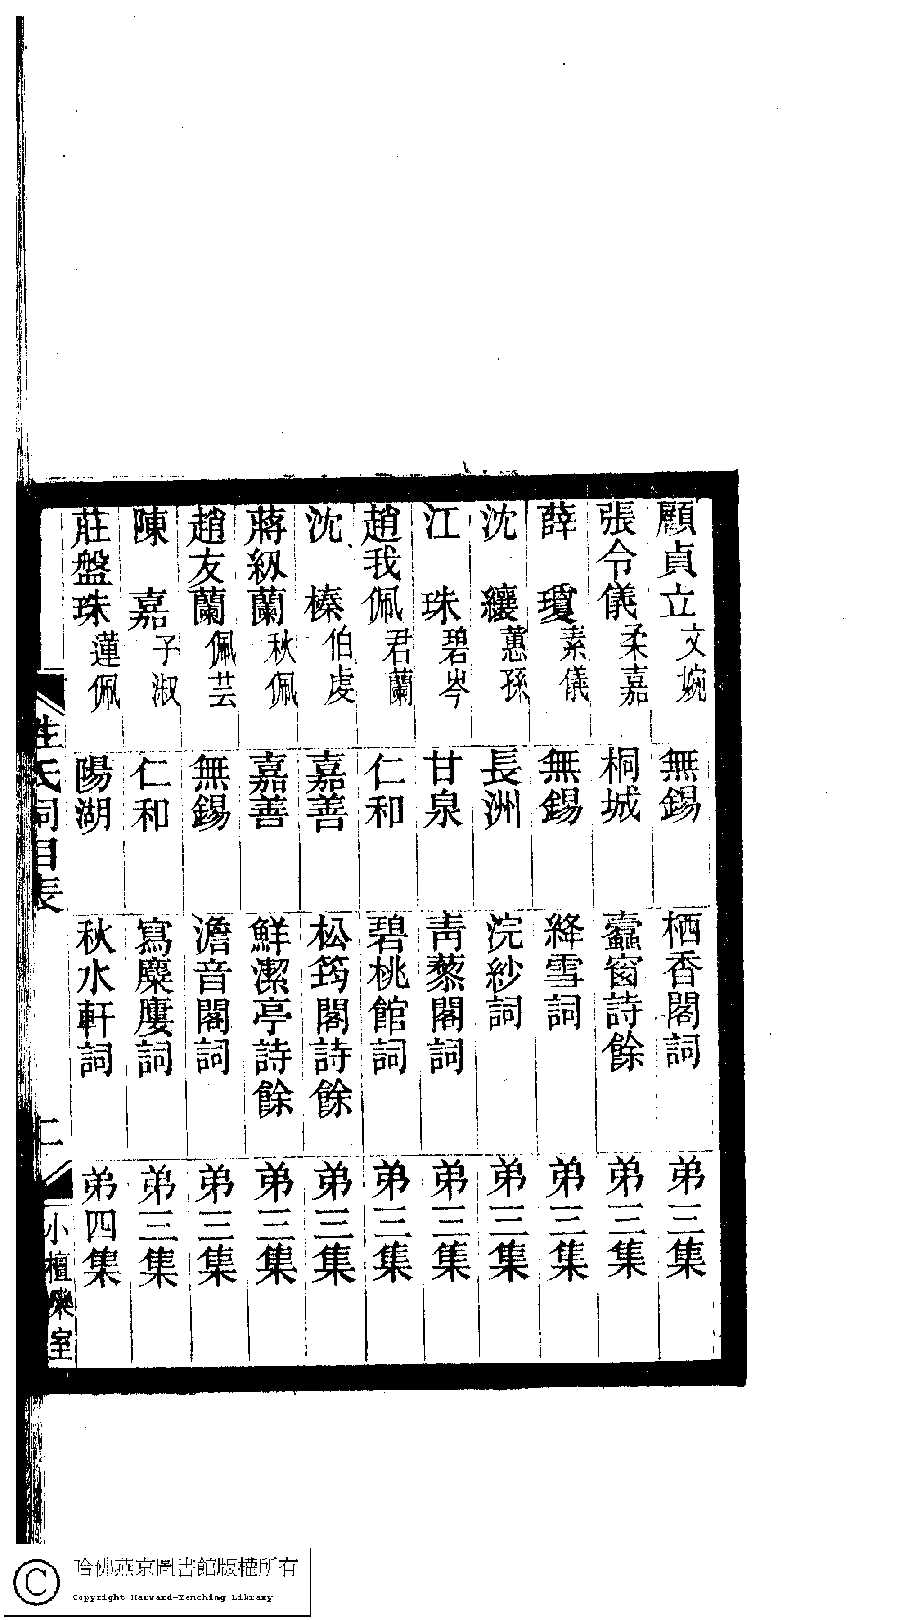 顧貞立 文婉 無錫 栖香閣詞 弟三集
張令儀 柔嘉 桐城 蠹窗詩餘 弟三集
薛 瓊 素儀 無錫 絳雪詞 弟三集
沈 纕 蕙孫 長洲 浣紗詞 弟三集
江 珠 碧岑 甘泉 青藜閣詞 弟三集
趙我佩 君蘭 仁和 碧桃館詞 弟三集
沈 榛 伯虔 嘉善 松筠閣詩餘 弟三集
蔣紉蘭 秋佩 嘉善 鮮潔亭詩餘 弟三集
趙友蘭 佩芸 無錫 澹音閣詞 弟三集
陳 嘉 子淑 仁和 寫麋廔詞 弟三集
莊盤珠 蓮佩 陽湖 秋水軒詞 弟四集
姓氏詞目表 二 小檀欒室
哈佛燕京圖書館版權所有
Copyright Harvard-Yenching Library